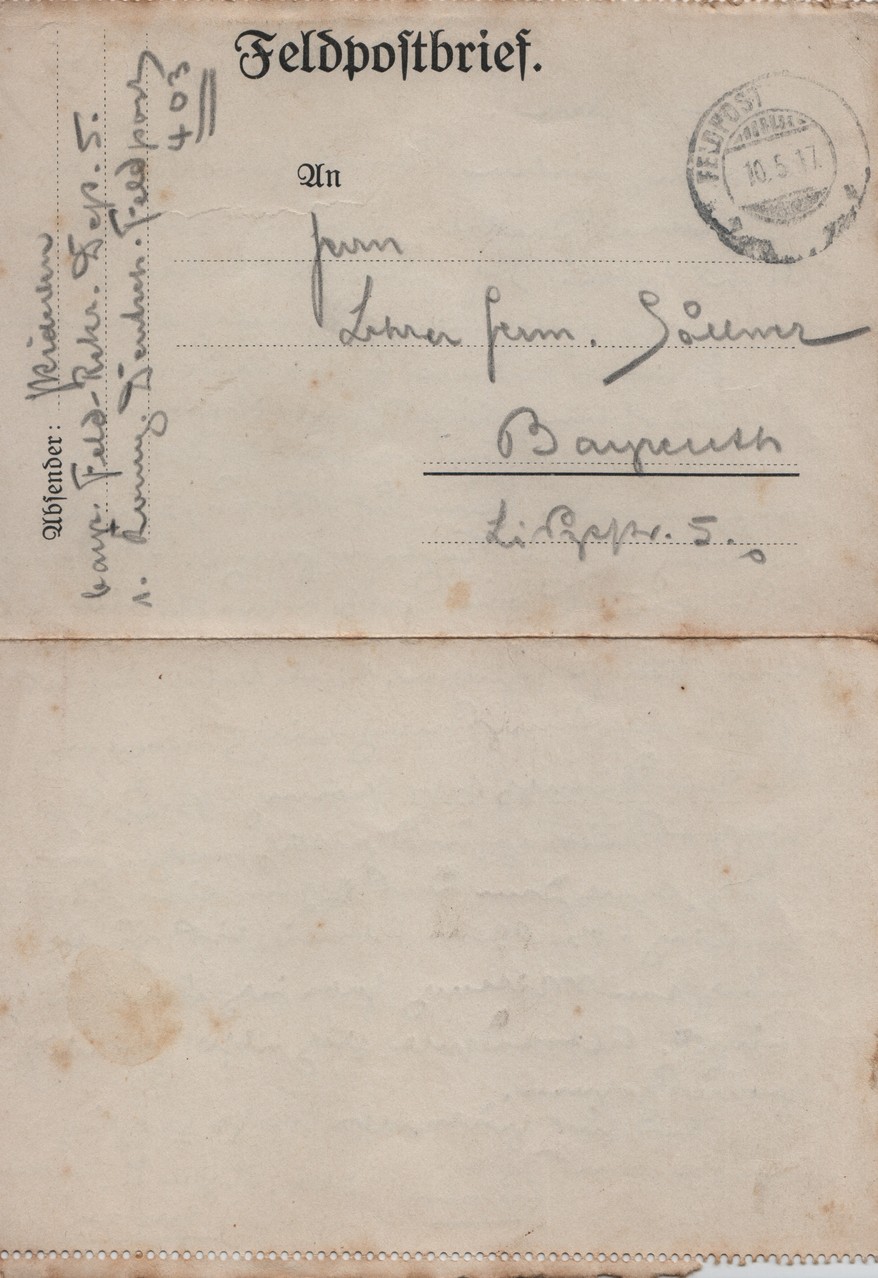 Feldpostbrief.
FELDPOST
10.5.17.
An
Herrn
Lehrer Herm.
Bayreuth
5.
Absender:
bayr. Feld-Rekr. Dep. 5.
1. Komp. Deutsch. Feldpost
403